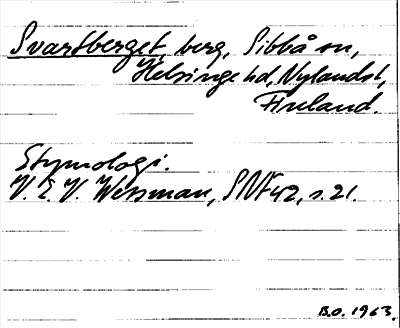 Svartberget, berg, Sibbå sn,
Helsinge hd, Nylands l,
Finland.
Etymologi.
V. E. V. Wessman, SNF 42, s. 21.
B.O. 1963.